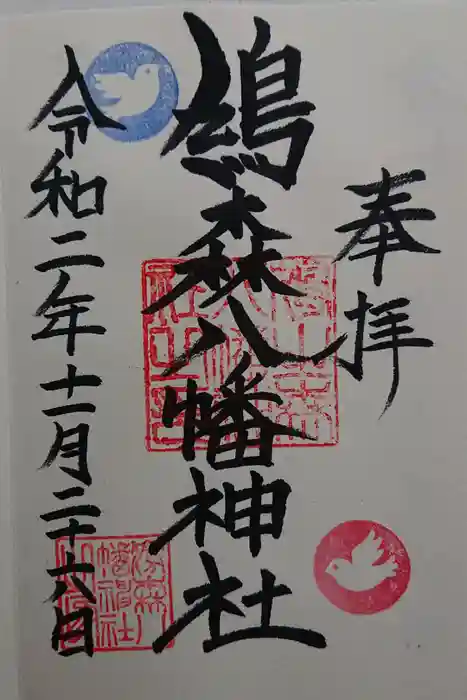 奉拝
鳩森八幡神社
令和二年十一月二十六日